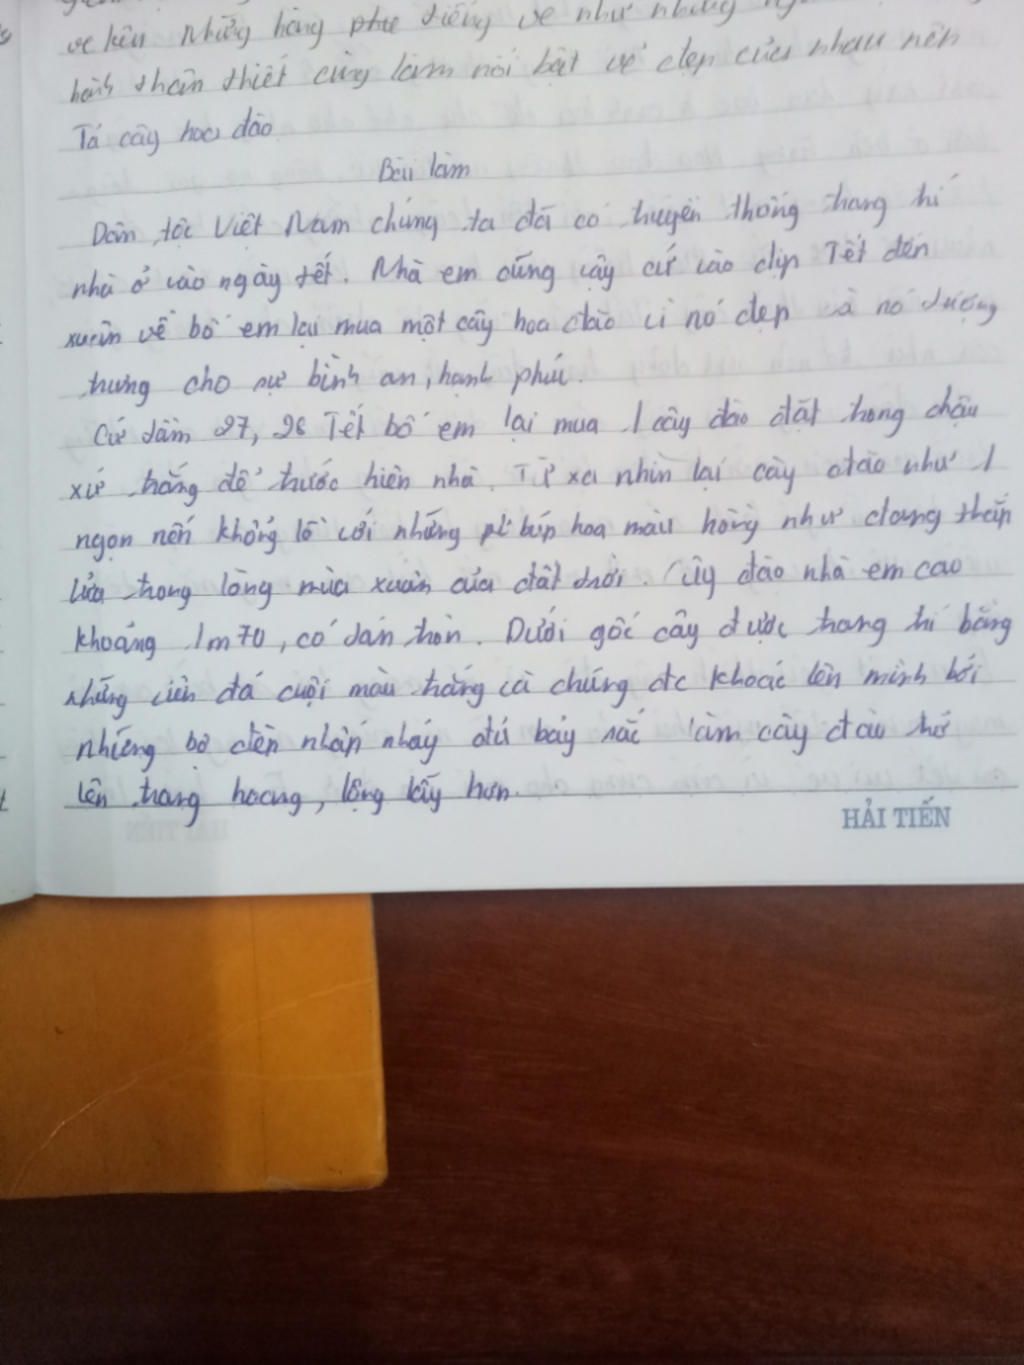 ve kêu những hàng phượ tiếng ve như những
hành thân thiết cùng làm nổi bật vẻ đẹp của nhau nên
Tả cây hoa đào
Bài làm
Dân tộc Việt Nam chúng ta đã có truyền thống trang trí
nhà ở vào ngày tết. Nhà em cũng vậy cứ vào dịp Tết đến
xuân về bố em lại mua một cây hoa đào vì nó đẹp và nó tượng
trưng cho sự bình an, hạnh phúc.
Cứ tầm 27, 28 Tết bố em lại mua 1 cây đào đặt trong chậu
xứ trắng để trước hiên nhà. Từ xa nhìn lại cây đào như 1
ngọn nến khổng lồ với những búp hoa màu hồng như đang thắp
lửa trong lòng mùa xuân của đất trời. Cây đào nhà em cao
khoảng 1m70, có tán tròn. Dưới gốc cây được trang trí bằng
những viên đá cuội màu trắng và chúng đc khoác lên mình bởi
những bộ đèn nhấp nháy đủ bảy sắc làm cây đào trở
lên trang hoang, lộng lẫy hơn.
HẢI TIẾN